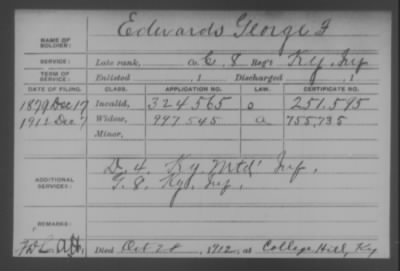 Edwards George F
NAME OF
SOLDIER:
SERVICE: Late rank, Co. C. 8 Reg't Ky. Inf
TERM OF
SERVICE: Enlisted , 1 Discharged , 1
DATE OF FILING. CLASS. APPLICATION NO. LAW. CERTIFICATE NO.
1879 Dec 17 Invalid, 324.565 251.595
1912 Dec 7 Widow, 997.545 a 755,735
Minor,
D. 4. Ky. Mtd' Inf.
ADDITIONAL
SERVICES:
G. 8. Ky. Inf.
REMARKS:
Died Oct 28, 1912, at College Hill, Ky